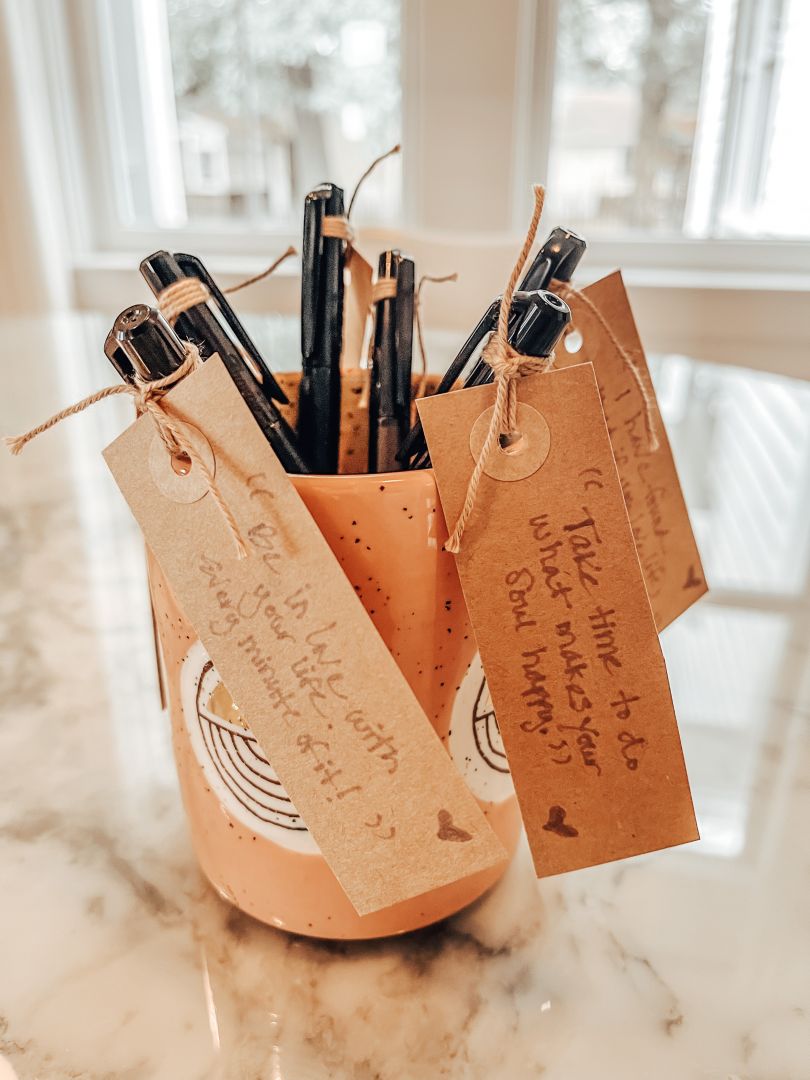 “Be in love with
your life.
Every minute of it! ”
“Take time to do
what makes your
soul happy.”
I have found
life